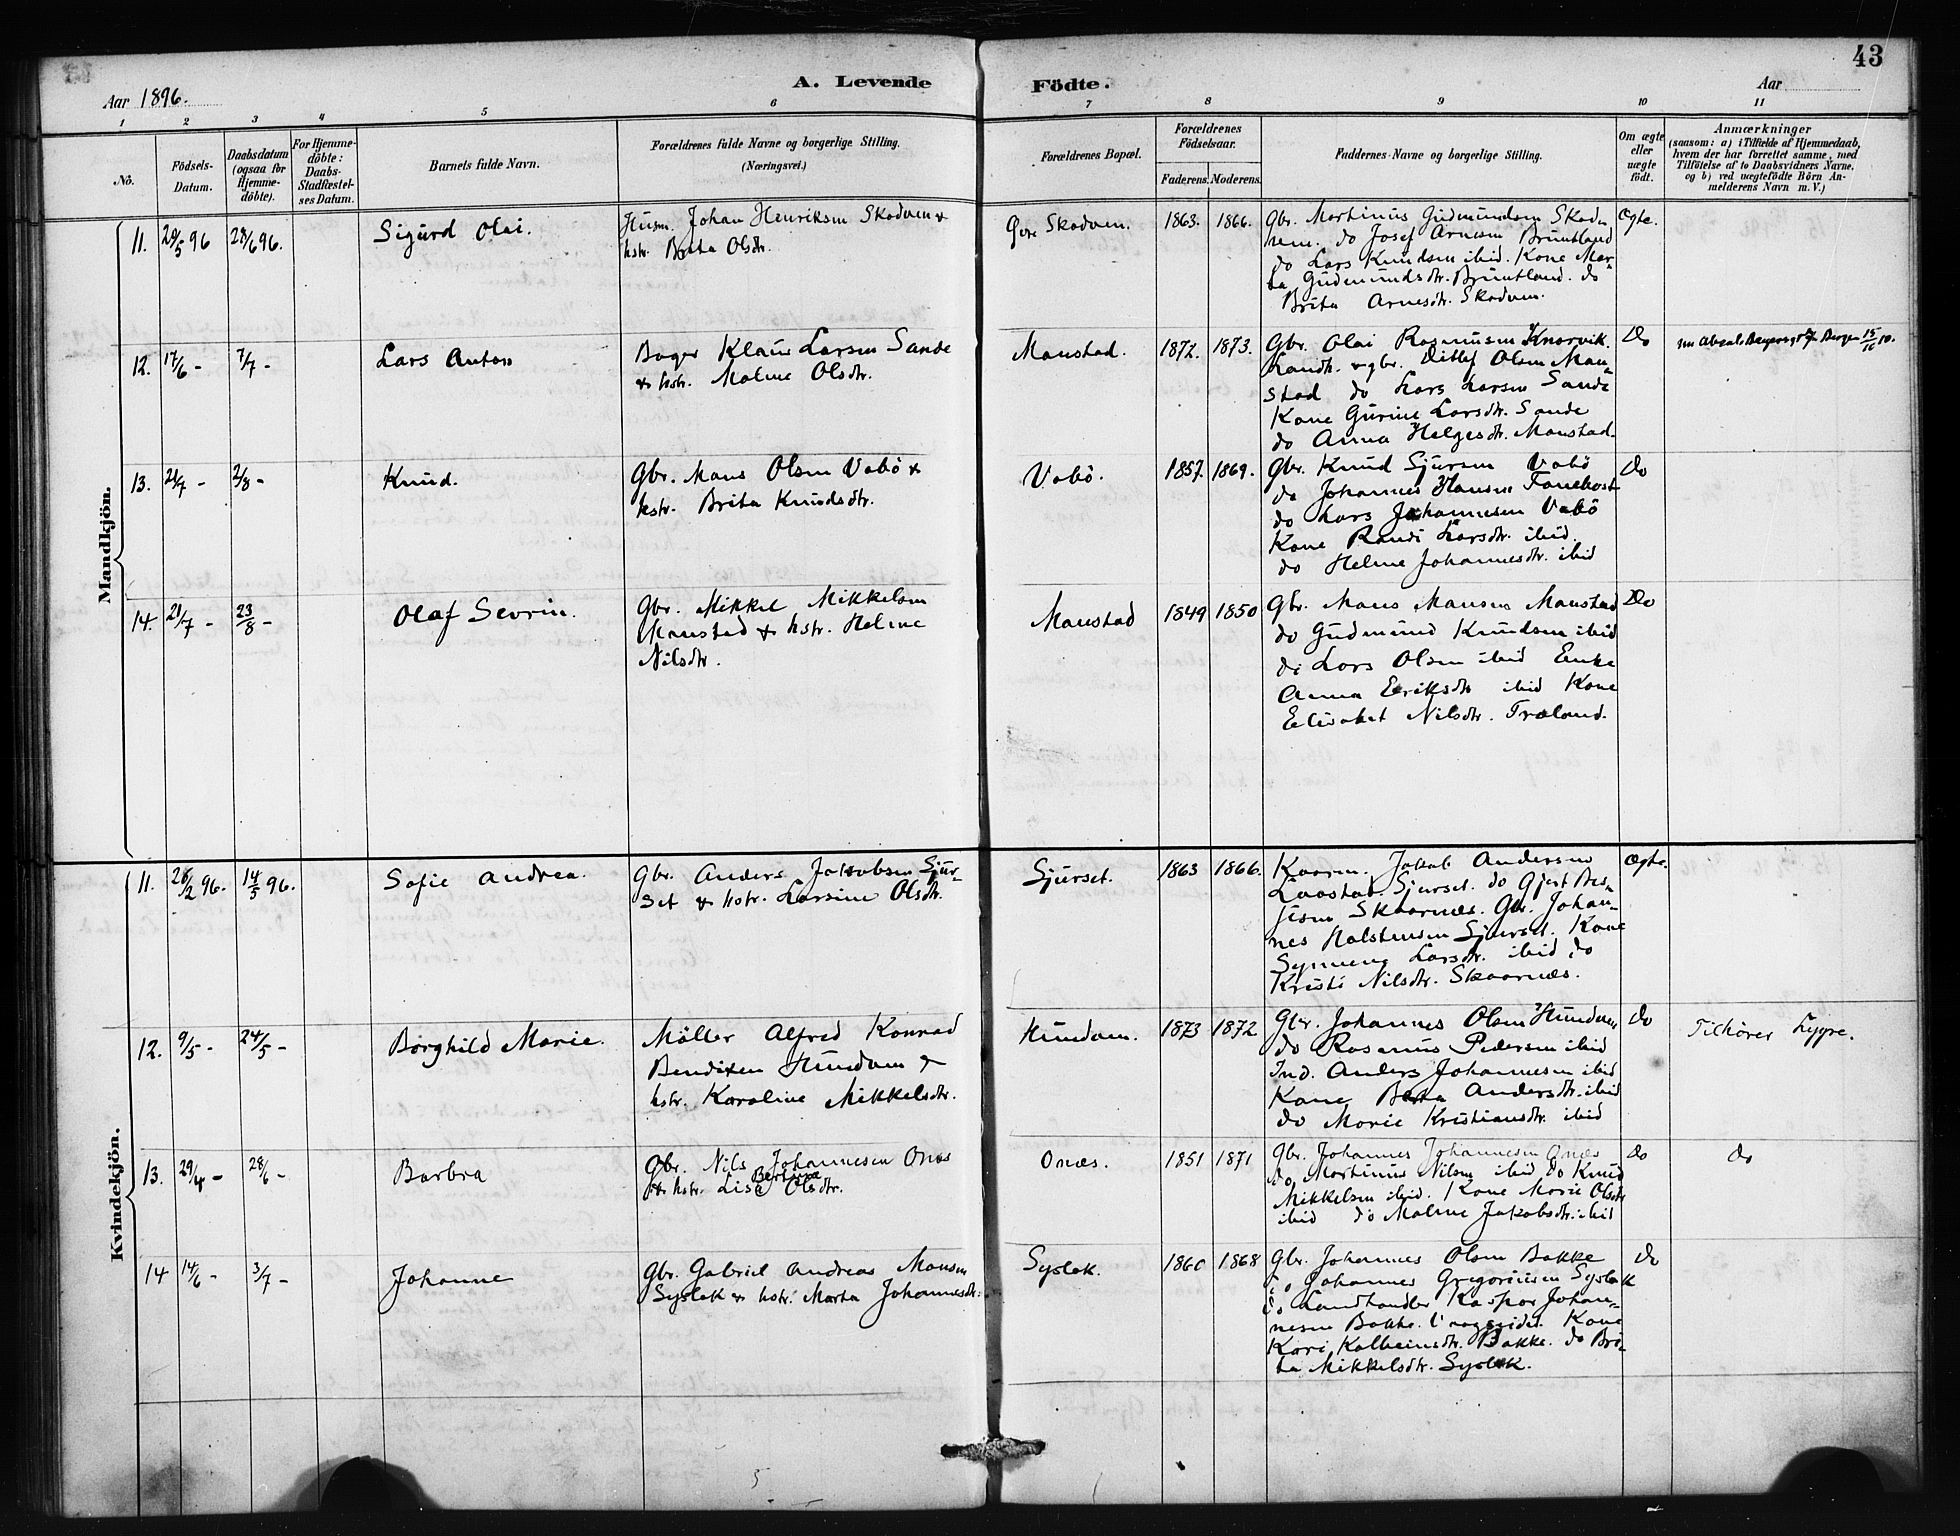 43
A. Levende Födte.
Aar 1896.
Aar
1 2 3 4 5 6 7 8 9 10 11
No.
Födsels-
Datum.
Daabsdatum
(ogsaa for
Hjemme-
döbte).
For Hjemme-
döbte:
Daabs-
Stadfæstel-
ses Datum.
Barnets fulde Navn.
Forældrenes fulde Navne og borgerlige Stilling.
(Næringsvei.)
Forældrenes Bopæl.
Forældrenes
Födselsaar.
Faderens. Moderens.
Faddernes Navne og borgerlige Stilling.
Om ægte
eller
uægte
födt.
Anmærkninger
(saasom: a) i Tilfælde af Hjemmedaab,
hvem der har forrettet samme, med
Tilföielse af to Daabsvidners Navne,
og b) ved uægtefödte Börn An-
melderens Navn m. V.)
Mandkjön.
11. 29/5 96 28/6 96. Sigurd Olai.
Husm. Johan Henriksen Skodven &
hstr. Brita Olsdtr.
Skodven. 1863. 1866.
Gbr. Martinus Gudmundsen Skod-
ven. do Josef Arnesen Bruntland
do Lars Knudsen ibid. Kone Mar-
ta Gudmundsdtr. Bruntland. do
Brita Arnesdtr. Skodven.
Ægte.
12. 17/6 - 7/7 - Lars Anton
Bager Klaus Larsen Sande
& hstr. Maline Olsdtr.
Manstad. 1872. 1873.
Gbr. Olai Rasmusen Knarvik.
Landh. & gbr. Ditlef Olsen Man-
stad do Lars Larsen Sande
Kone Gurine Larsdtr. Sande
do Anna Helgesdtr. Manstad.
Do
Bergen 15/10 10.
13. 21/7 - 2/8 - Knud.
Gbr. Mons Olsen Vabö &
hstr. Brita Knudsdtr.
Vabö. 1857. 1869.
Gbr. Knud Sjursen Vabö
do Johannes Hansen Tanebost
do Lars Johannesen Vabö
Kone Randi Larsdtr. ibid.
do Heline Johannesdtr. ibid
Do
14. 21/7 - 23/8 - Olaf Sevrin.
Gbr. Mikkel Mikkelsen
Manstad & hstr. Heline
Nilsdtr.
Manstad 1849 1850
Gbr. Mons Monsen Manstad
do Gudmund Knudsen ibid
do Lars Olsen ibid Enke
Anna Eeriksdtr ibid Kone
Elisabet Nilsdtr. Træland.
Do
Kvindekjön.
11. 28/2 96. 14/5 96. Sofie Andrea.
Gbr. Anders Jakobsen Sjur-
set & hstr. Larsine Olsdtr.
Sjurset. 1863 1866.
Jakob Andersen
Sjurset. do Gjert Bes-
jesen Skaarnæs. Gbr. Johan-
nes Halstensen Sjurset. Kone
Synneve Larsdtr. ibid do
Kristi Nilsdtr. Skaarnæs.
Ægte.
12. 9/5 - 24/5 - Borghild Marie.
Möller Alfred Konrad
Bendixen Hundven &
hstr. Karoline Mikkelsdtr.
Hundven. 1873 1872
Gbr. Johannes Olsen Hundven
do Rasmus Pedersen ibid
Ind. Anders Johannesen ibid
Kone Berta Andersdtr. ibid
do Marie Kristiansdtr. ibid
Do
Tilhører Lygre.
13. 29/4 - 28/6 - Barbra
Gbr. Nils Johannesen Onæs
Bertina
& hstr. Lise Olsdtr.
Onæs. 1851 1871
Gbr. Johannes Johannesen Onæs
do Martinus Nilsen ibid Do Knud
Mikkelsen ibid. Kone Marie Olsdtr
ibid do Maline Jakobsdtr. ibid
Do
do
14 14/6 - 3/7 - Johanne
Gbr. Gabriel Andreas Monsen
Syslak & hstr. Marta Johannesdtr.
Syslak. 1860 1868
Gbr. Johannes Olsen Bakke
do Johannes Gregoriusen Syslak
do Landhandler Kaspar Johan-
nesen Bakke. Kone
Kari Kolbeinsdtr. Bakke. do Bri-
ta Mikkelsdtr. Syslak.
do